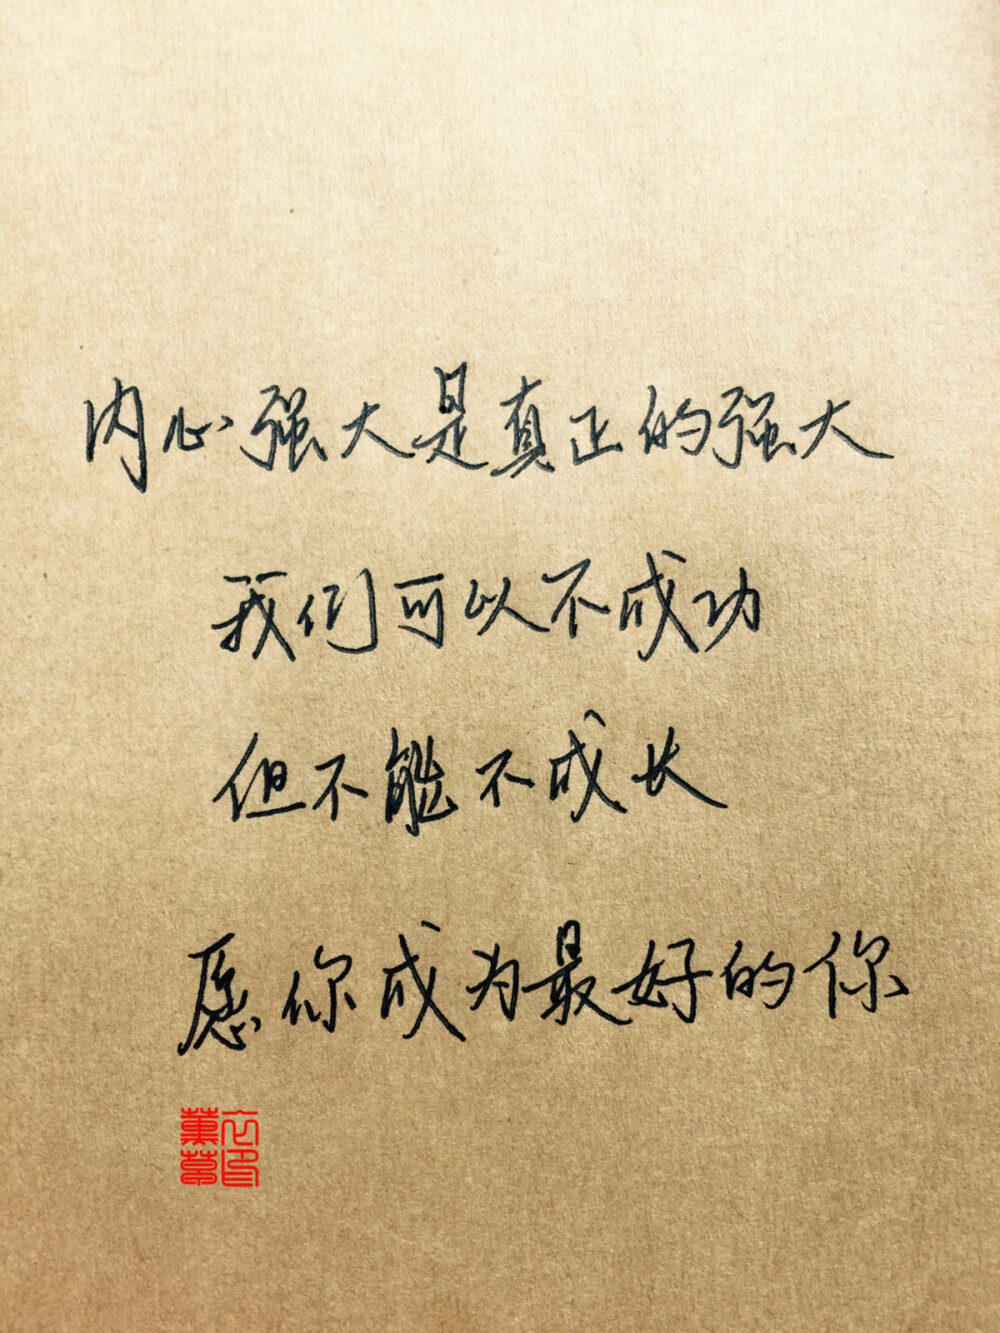 内心强大是真正的强大
我们可以不成功
但不能不成长
愿你成为最好的你